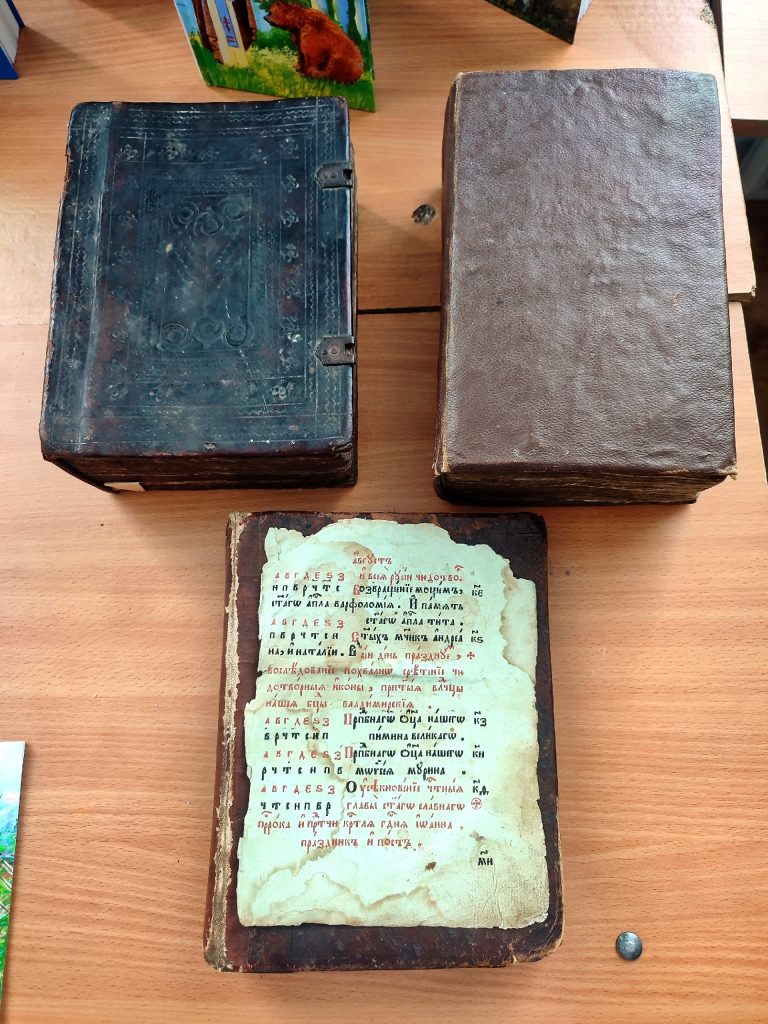 а҆́вгꙋстъ
а в г д є ѕ з и҆ всеѧ̀ рꙋсїи чюдотво.
и п в р ч т є Возвращенїе мощемъ, к҃є
ст҃а́гѡ а҆п҃ла варѳоломїѧ . И҆ па́мѧть
а в г д є ѕ з ст҃а́гѡ а҆п҃ла ти́та .
п в р ч т є и Ст҃ы́хъ мч҃нкъ а҆ндреа́ к҃ѕ
на, и҆ ната́лїи . В сїи де́нь пра́зднꙋе,
послѣ́дованїе похва́лнѡ срѣ́тенїе чю
дотво́рныѧ и҆ко́ны, прест҃ы́ѧ влⷣчцы
на́шеѧ бц҃ы влади́мирскїѧ .
а в г д є ѕ з Прпⷣбнагѡ ѻ҆ц҃а на́шегѡ к҃з
в р ч т є и п пи́мина вели́кагѡ .
а в г д є ѕ з Прпⷣбнагѡ ѻ҆ц҃а на́шегѡ к҃и
р ч т є и п в мѡѷсе́ѧ мꙋ́рина .
а в г д є ѕ з Оу҆сѣкнове́нїе чⷭ҇тны́ѧ к҃ѳ
ч т є и п в р главы̀ ст҃а́гѡ сла́внагѡ
прⷪ҇ро́ка и҆ прⷣте́чи крⷭ҇ти́лѧ гдⷭ҇нѧ і҆ѡа́нна .
пра́здникъ и҆ по́стъ .
м҃и